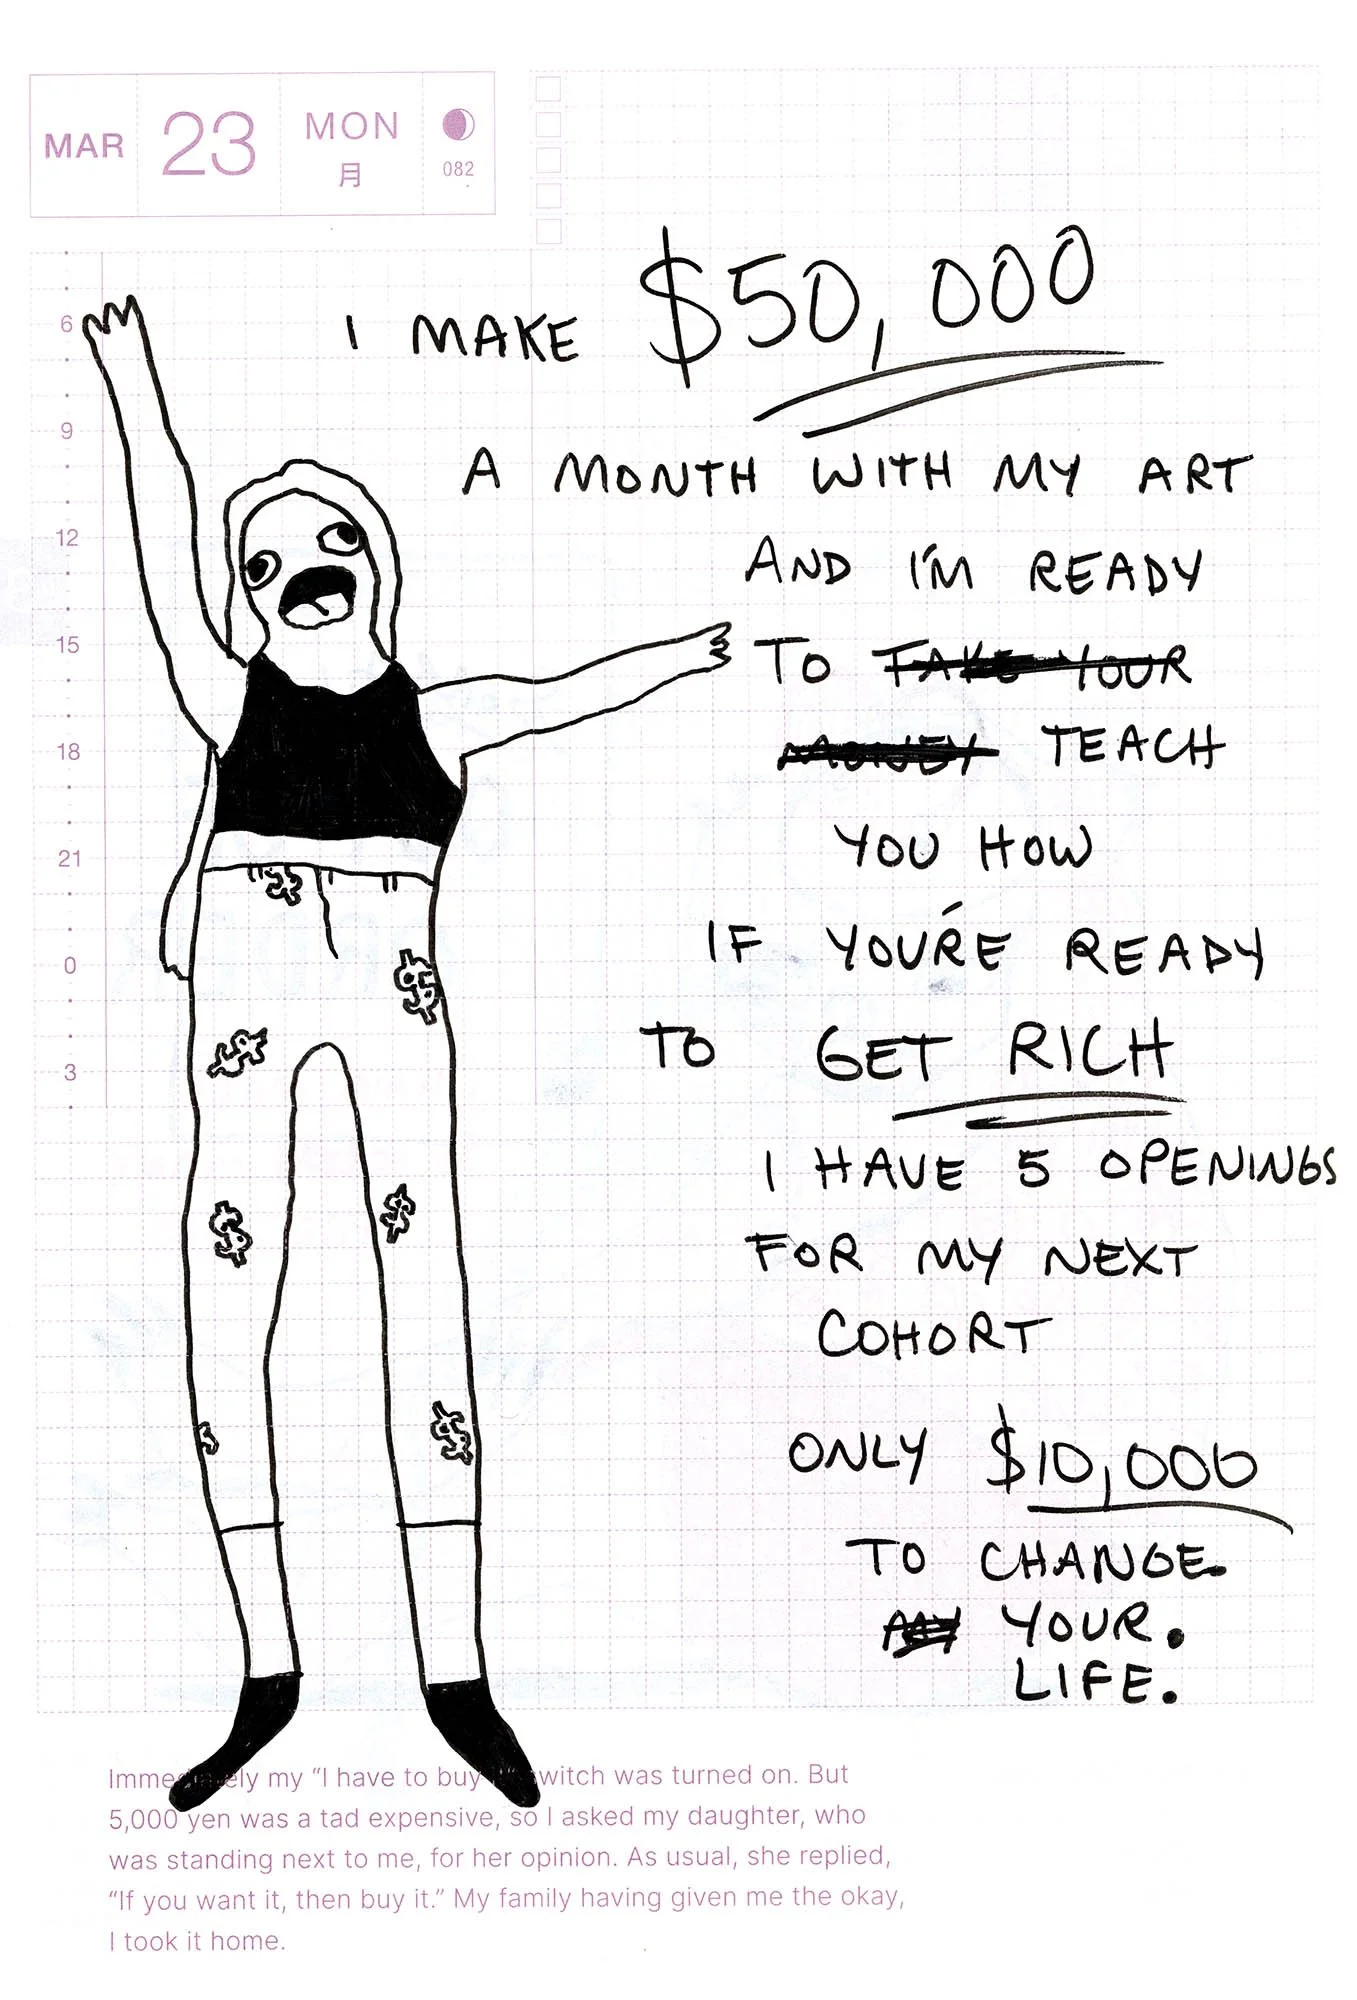 MAR 23 MON 月 082
6
9
12
15
18
21
0
3
I MAKE $50,000
A MONTH WITH MY ART
AND I'M READY
TO TAKE YOUR
MONEY TEACH
YOU HOW
IF YOU'RE READY
TO GET RICH
I HAVE 5 OPENINGS
FOR MY NEXT
COHORT
ONLY $10,000
TO CHANGE.
MY YOUR.
LIFE.
my “I have to buy was turned on. But
5,000 yen was a tad expensive, so I asked my daughter, who
was standing next to me, for her opinion. As usual, she replied,
“If you want it, then buy it.” My family having given me the okay,
I took it home.